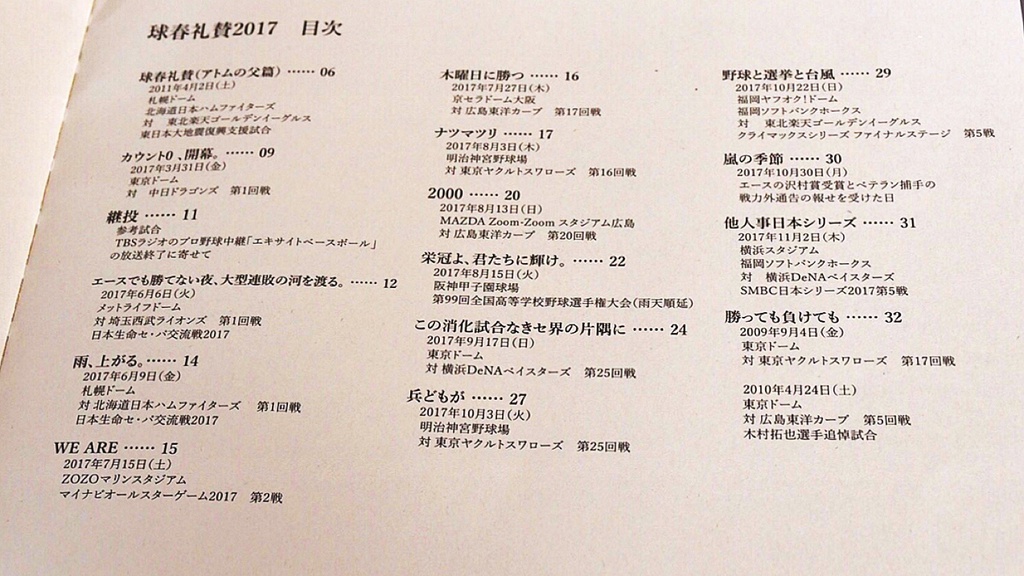 球春礼賛2017　目次
球春礼賛（アトムの父篇） …… 06
2011年4月2日（土）
札幌ドーム
北海道日本ハムファイターズ
対　東北楽天ゴールデンイーグルス
東日本大地震復興支援試合
カウント0 、開幕。 …… 09
2017年3月31日（金）
東京ドーム
対　中日ドラゴンズ　第1回戦
継投 …… 11
参考試合
TBSラジオのプロ野球中継「エキサイトベースボール」
の放送終了に寄せて
エースでも勝てない夜、大型連敗の河を渡る。 …… 12
2017年6月6日（火）
メットライフドーム
対 埼玉西武ライオンズ　第1回戦
日本生命セ・パ交流戦2017
雨、上がる。 …… 14
2017年6月9日（金）
札幌ドーム
対 北海道日本ハムファイターズ　第1回戦
日本生命セ・パ交流戦2017
WE ARE …… 15
2017年7月15日（土）
ZOZOマリンスタジアム
マイナビオールスターゲーム2017　第2戦
木曜日に勝つ …… 16
2017年7月27日（木）
京セラドーム大阪
対 広島東洋カープ　第17回戦
ナツマツリ …… 17
2017年8月3日（木）
明治神宮野球場
対 東京ヤクルトスワローズ　第16回戦
2000 …… 20
2017年8月13日（日）
MAZDA Zoom-Zoom スタジアム広島
対 広島東洋カープ　第20回戦
栄冠よ、君たちに輝け。 …… 22
2017年8月15日（火）
阪神甲子園球場
第99回全国高等学校野球選手権大会（雨天順延）
この消化試合なきセ界の片隅に …… 24
2017年9月17日（日）
東京ドーム
対 横浜DeNAベイスターズ　第25回戦
兵どもが …… 27
2017年10月3日（火）
明治神宮野球場
対 東京ヤクルトスワローズ　第25回戦
野球と選挙と台風 …… 29
2017年10月22日（日）
福岡ヤフオク！ドーム
福岡ソフトバンクホークス
対　東北楽天ゴールデンイーグルス
クライマックスシリーズ ファイナルステージ　第5戦
嵐の季節 …… 30
2017年10月30日（月）
エースの沢村賞受賞とベテラン捕手の
戦力外通告の報せを受けた日
他人事日本シリーズ …… 31
2017年11月2日（木）
横浜スタジアム
福岡ソフトバンクホークス
対　横浜DeNAベイスターズ
SMBC日本シリーズ2017第5戦
勝っても負けても …… 32
2009年9月4日（金）
東京ドーム
対 東京ヤクルトスワローズ　第17回戦
2010年4月24日（土）
東京ドーム
対 広島東洋カープ　第5回戦
木村拓也選手追悼試合